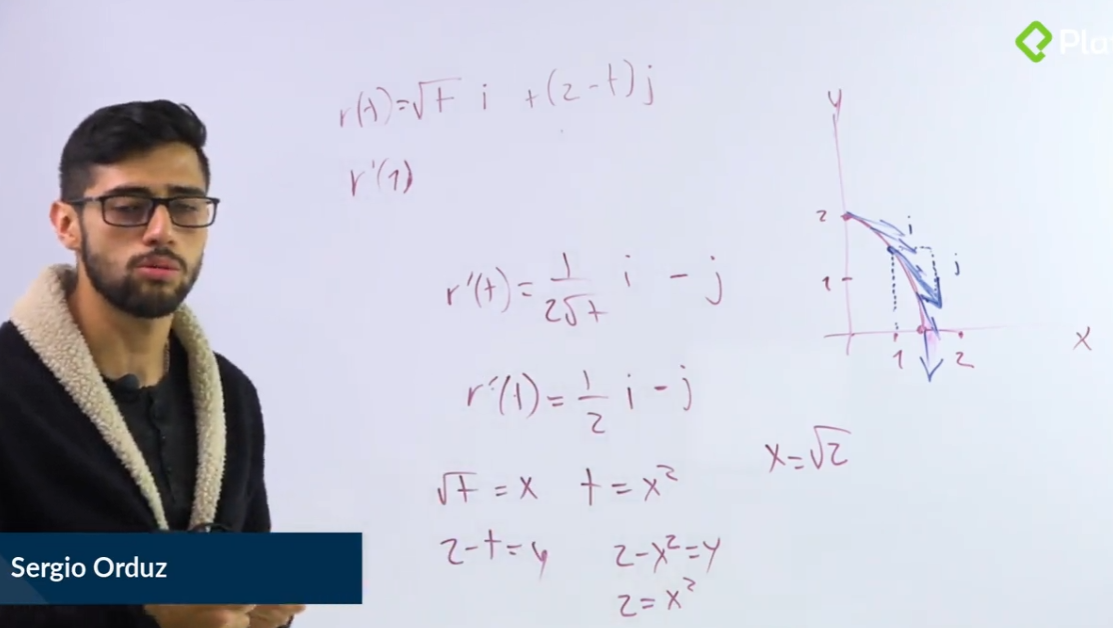 Plat
r(t)=√t i +(2-t)j
r'(1)
r'(t)= 1/(2√t) i - j
r'(1)= 1/2 i - j
√t = x t = x²
2-t=y 2-x²=y
2=x²
x=√2
y
2
1
i
j
1 2
x
Sergio Orduz